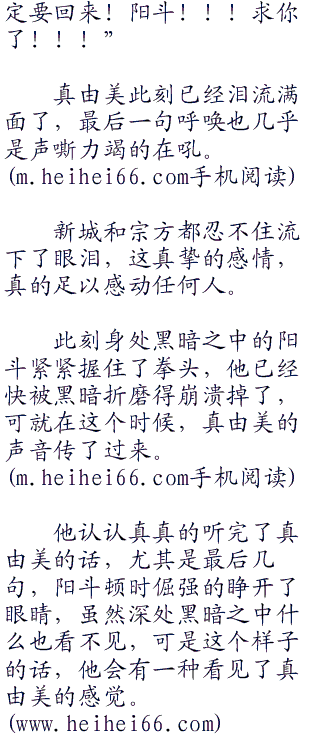 定要回来！阳斗！！！求你
了！！！”
真由美此刻已经泪流满
面了，最后一句呼唤也几乎
是声嘶力竭的在吼。
(m.heihei66.com手机阅读)
新城和宗方都忍不住流
下了眼泪，这真挚的感情，
真的足以感动任何人。
此刻身处黑暗之中的阳
斗紧紧握住了拳头，他已经
快被黑暗折磨得崩溃掉了，
可就在这个时候，真由美的
声音传了过来。
(m.heihei66.com手机阅读)
他认认真真的听完了真
由美的话，尤其是最后几
句，阳斗顿时倔强的睁开了
眼睛，虽然深处黑暗之中什
么也看不见，可是这个样子
的话，他会有一种看见了真
由美的感觉。
(www.heihei66.com)